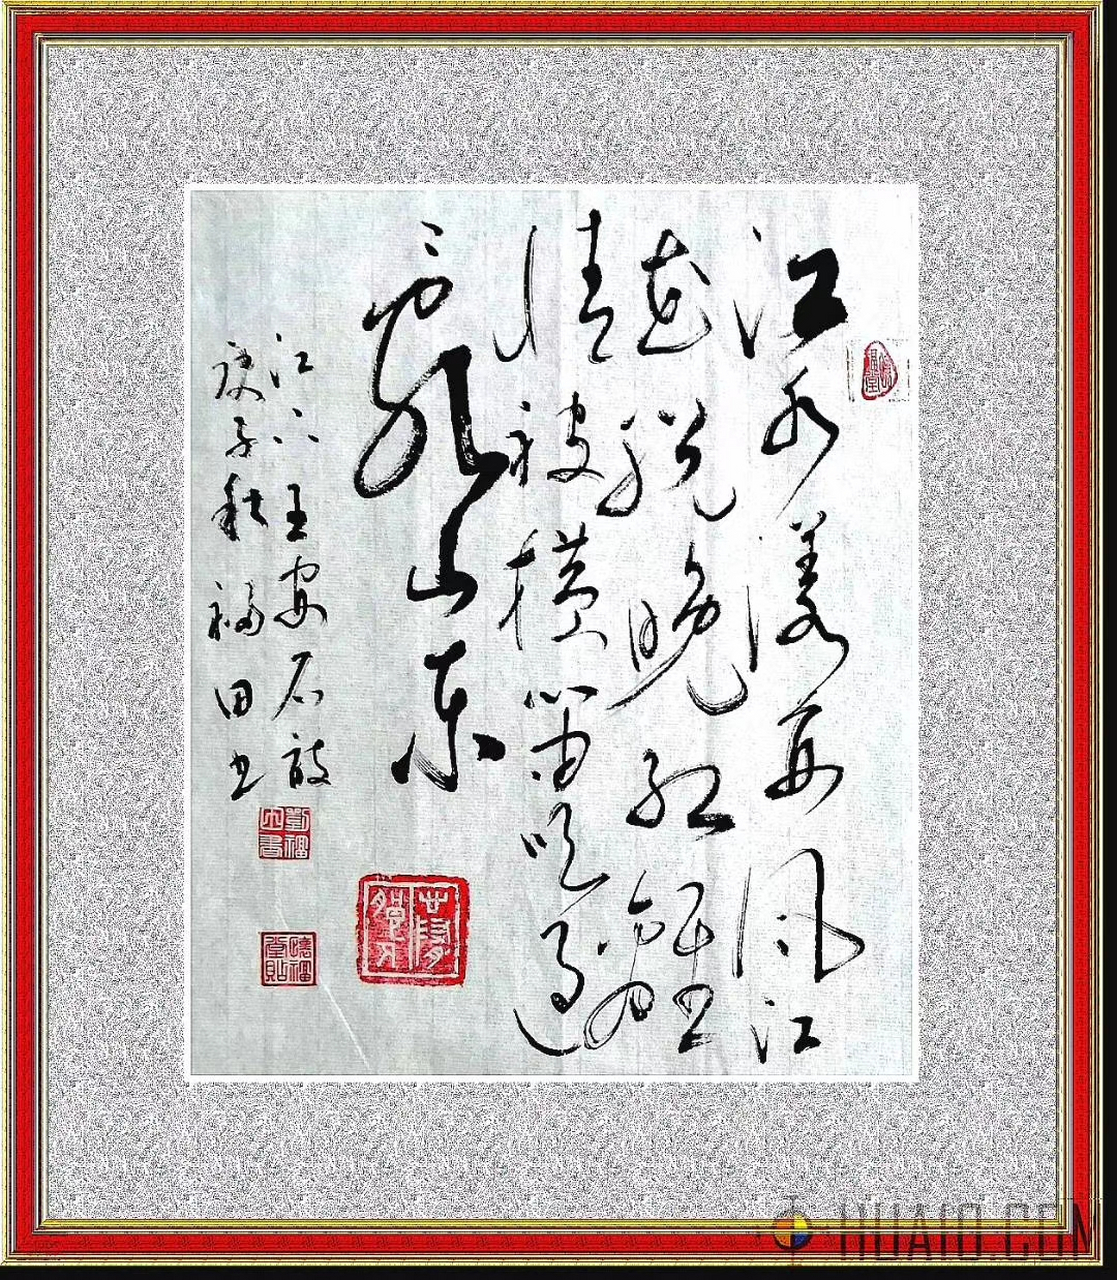 江水漾西风江
花脱晚红離
情被横笛吹過
亂山东
江上王安石诗
庚子秋福田书
HUAIO.COM